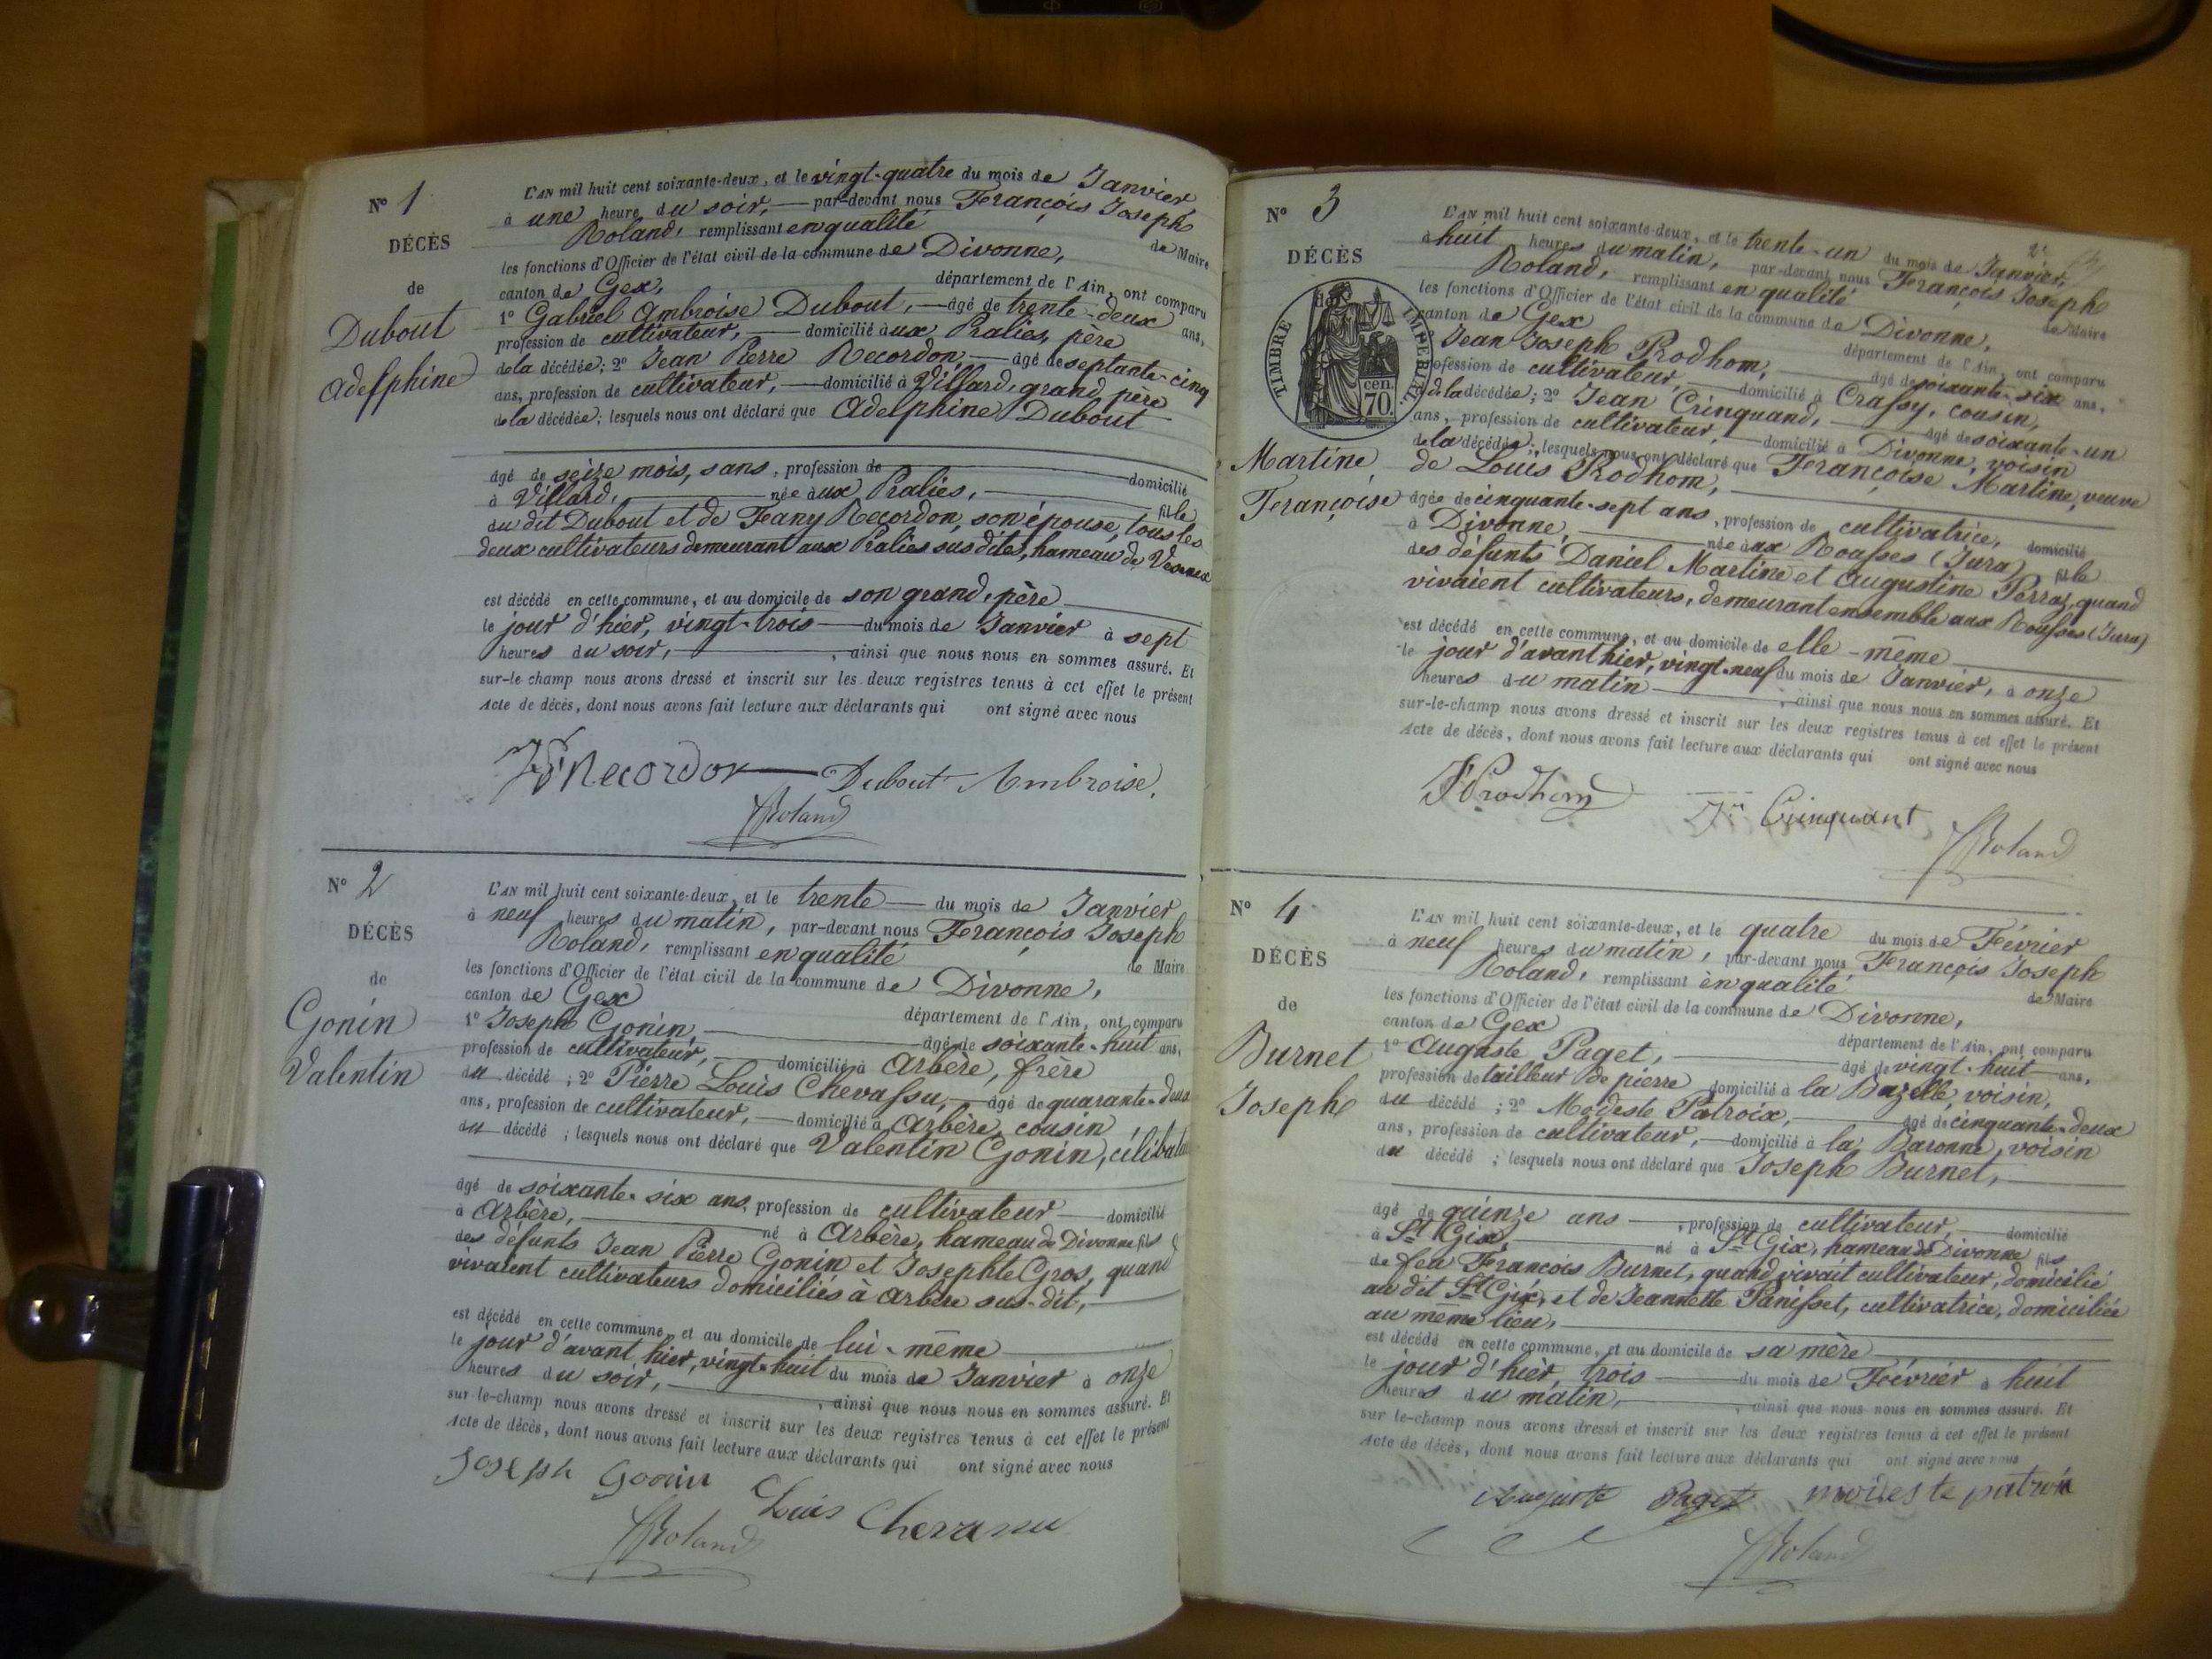 N° 1
DÉCÈS
de
Dubout
Adelphine
L'AN mil huit cent soixante-deux, et le vingt-quatre du mois de Janvier
à une heure du soir, par-devant nous François Joseph
Roland, remplissant en qualité de Maire
les fonctions d'Officier de l'état civil de la commune de Divonne,
canton de Gex, département de l'Ain, ont comparu
1° Gabriel Ambroise Dubout, âgé de trente-deux ans,
profession de cultivateur, domicilié aux Pralies, père
de la décédée; 2° Jean Pierre Recordon, âgé de septante-cinq
ans, profession de cultivateur, domicilié à Villard, grand père
de la décédée; lesquels nous ont déclaré que Adelphine Dubout
âgé de seize mois, sans, profession de domicilié
à Villard, née aux Pralies, fille
du dit Dubout et de Jeany Recordon, son épouse, tous les
deux cultivateurs demeurant aux Pralies sus dites, hameau de Vesenex
est décédé en cette commune, et au domicile de son grand, père
le jour d'hier, vingt-trois du mois de Janvier à sept
heures du soir, , ainsi que nous nous en sommes assuré. Et
sur-le champ nous avons dressé et inscrit sur les deux registres tenus à cet effet le présent
Acte de décès, dont nous avons fait lecture aux déclarants qui ont signé avec nous
Recordon Dubout Ambroise.
Roland
N° 2
DÉCÈS
de
Gonin
Valentin
L'AN mil huit cent soixante-deux, et le trente du mois de Janvier
à neuf heures du matin, par-devant nous François Joseph
Roland, remplissant en qualité de Maire
les fonctions d'Officier de l'état civil de la commune de Divonne,
canton de Gex département de l'Ain, ont comparu
1° Joseph Gonin, âgé de soixante-huit ans,
profession de cultivateur, domicilié à Arbère, frère
du décédé; 2° Pierre Louis Chevassu, âgé de quarante-deux
ans, profession de cultivateur, domicilié à Arbère, cousin
du décédé; lesquels nous ont déclaré que Valentin Gonin,
âgé de soixante-six ans, profession de cultivateur domicilié
à Arbère, né à Arbère, hameau de Divonne fils
des défunts Jean Pierre Gonin et Josephte Gros, quand
vivaient cultivateurs domiciliés à Arbère sus-dit,
est décédé en cette commune, et au domicile de lui-même
le jour d'avant hier, vingt-huit du mois de Janvier à onze
heures du soir, , ainsi que nous nous en sommes assuré. Et
sur-le-champ nous avons dressé et inscrit sur les deux registres tenus à cet effet le présent
Acte de décès, dont nous avons fait lecture aux déclarants qui ont signé avec nous
Joseph Gonin Louis Chevassu
Roland
N° 3
DÉCÈS
de
TIMBRE IMPERIAL
cen.
70.
Martine
Françoise
L'AN mil huit cent soixante-deux, et le trente-un du mois de Janvier,
à huit heures du matin, par-devant nous François Joseph
Roland, remplissant en qualité de Maire
les fonctions d'Officier de l'état civil de la commune de Divonne,
canton de Gex département de l'Ain, ont comparu
Jean Joseph Prodhom, âgé de soixante-six ans,
profession de cultivateur, domicilié à Crassy, cousin,
de la décédée; 2° Jean Crinquand, âgé de soixante-un
ans, profession de cultivateur, domicilié à Divonne, voisin
de la décédée; lesquels nous ont déclaré que Françoise Martine, veuve
de Louis Prodhom,
âgée de cinquante-sept ans, profession de cultivatrice, domicilié
à Divonne, née aux Rousses (Jura) fille
des défunts Daniel Martine et Augustine Perraz, quand
vivaient cultivateurs, demeurant ensemble aux Rousses (Jura)
est décédé en cette commune, et au domicile de elle-même
le jour d'avant hier, vingt-neuf du mois de Janvier, à onze
heures du matin , ainsi que nous nous en sommes assuré. Et
sur-le-champ nous avons dressé et inscrit sur les deux registres tenus à cet effet le présent
Acte de décès, dont nous avons fait lecture aux déclarants qui ont signé avec nous
Prodhom Crinquant
Roland
N° 4
DÉCÈS
de
Burnet
Joseph
L'AN mil huit cent soixante-deux, et le quatre du mois de Février
à neuf heures du matin, par-devant nous François Joseph
Roland, remplissant en qualité de Maire
les fonctions d'Officier de l'état civil de la commune de Divonne,
canton de Gex département de l'Ain, ont comparu
1° Auguste Paget, âgé de vingt-huit ans,
profession de tailleur de pierre domicilié à la Bazelle, voisin,
du décédé; 2° Modeste Patroix, âgé de cinquante-deux
ans, profession de cultivateur, domicilié à la Baronne, voisin
du décédé; lesquels nous ont déclaré que Joseph Burnet,
âgé de quinze ans, profession de cultivateur, domicilié
à St Gix, né à St Gix, hameau de Divonne fils
de feu François Burnet, quand vivait cultivateur, domicilié
au dit St Gix, et de Jeannette Panisset, cultivatrice, domiciliée
au même lieu,
est décédé en cette commune, et au domicile de sa mère
le jour d'hier, trois du mois de Février à huit
heures du matin, , ainsi que nous nous en sommes assuré. Et
sur le-champ nous avons dressé et inscrit sur les deux registres tenus à cet effet le présent
Acte de décès, dont nous avons fait lecture aux déclarants qui ont signé avec nous
Auguste Paget modeste patroix
Roland